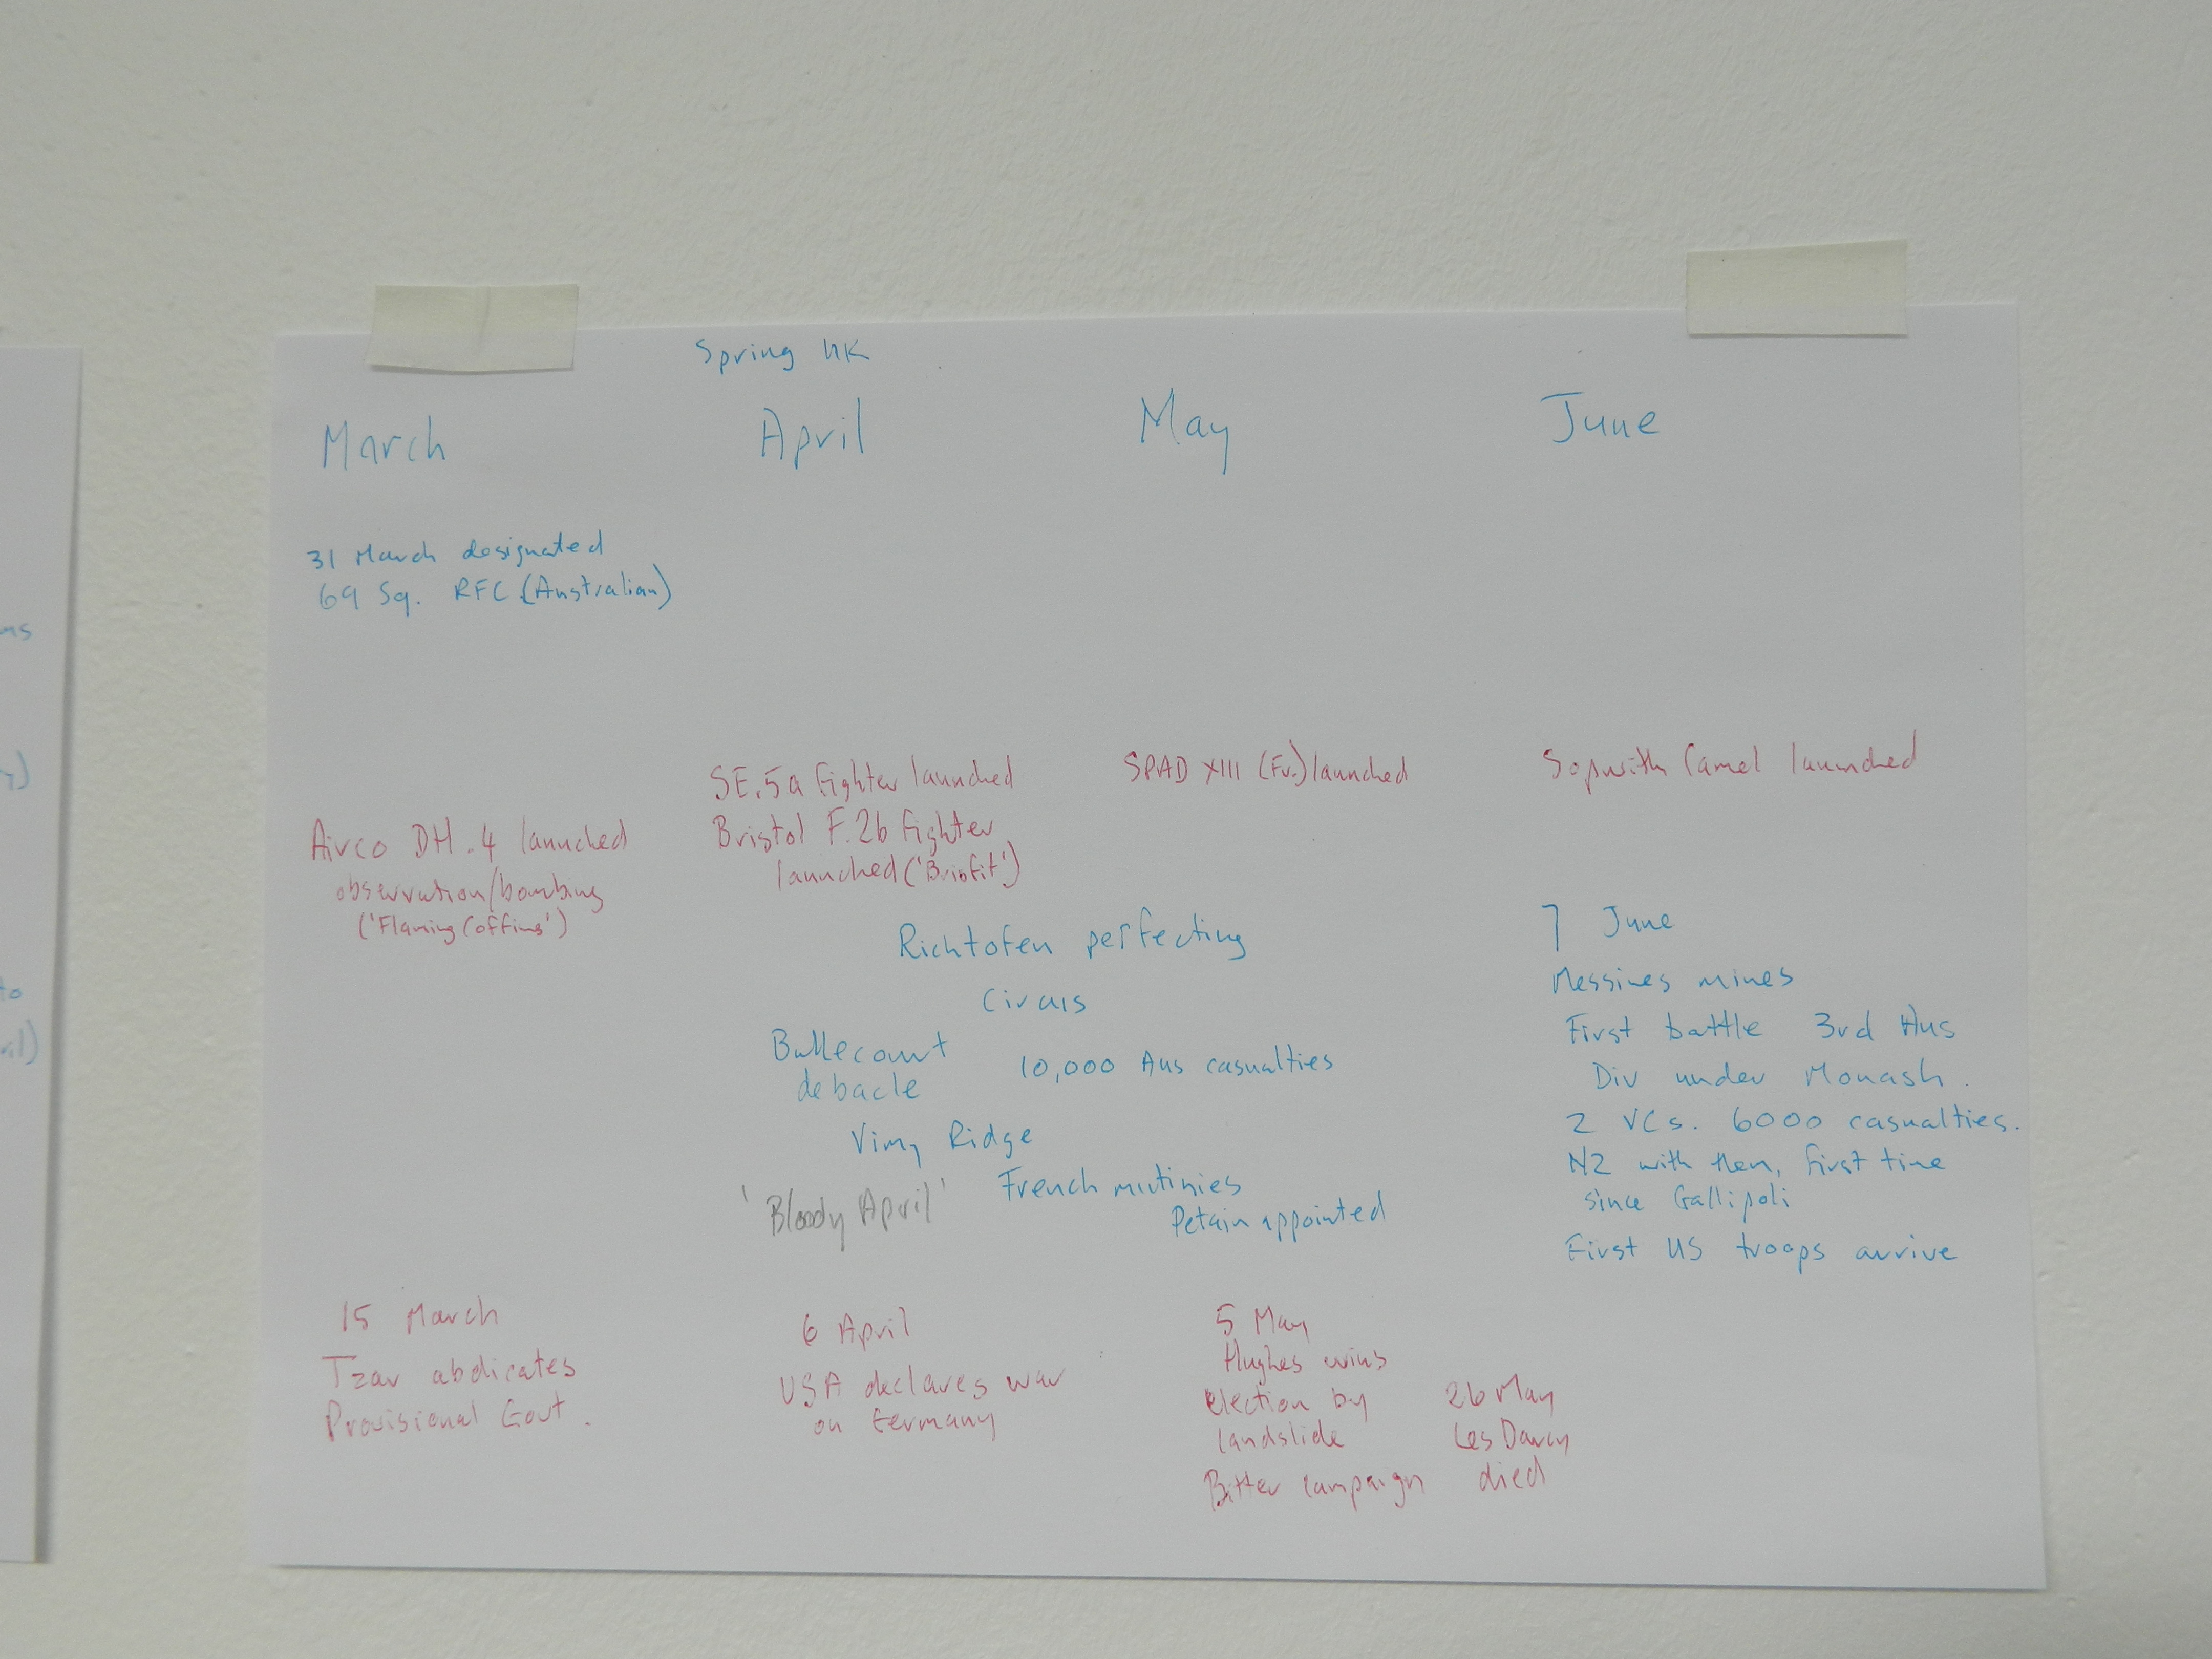 Spring UK
March
April
May
June
31 March designated
69 Sq. RFC (Australian)
Airco DH.4 launched
observation/bombing
('Flaming Coffins')
SE.5a fighter launched
Bristol F.2b fighter
launched ('Brisfit')
SPAD XIII (Fr.) launched
Sopwith Camel launched
Richtofen perfecting
Circus
Bullecourt
debacle
10,000 Aus casualties
Vimy Ridge
'Bloody April'
French mutinies
Petain appointed
7 June
Messines mines
First battle 3rd Aus
Div under Monash.
2 VCs. 6000 casualties.
NZ with them, first time
since Gallipoli
First US troops arrive
15 March
Tzar abdicates
Provisional Govt.
6 April
USA declares war
on Germany
5 May
Hughes wins
election by
landslide
Bitter campaign
26 May
Les Darcy
died